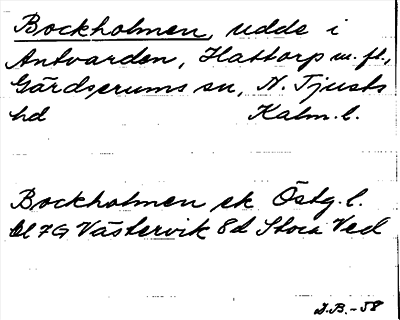 Bockholmen, udde i
Antvarden, Hattorp m. fl.,
Gärdserums sn, N. Tjusts
hd Kalm. l.
Bockholmen ek Östg. l.
bl 7G Västervik 8d Stora Ved
J.B. -58